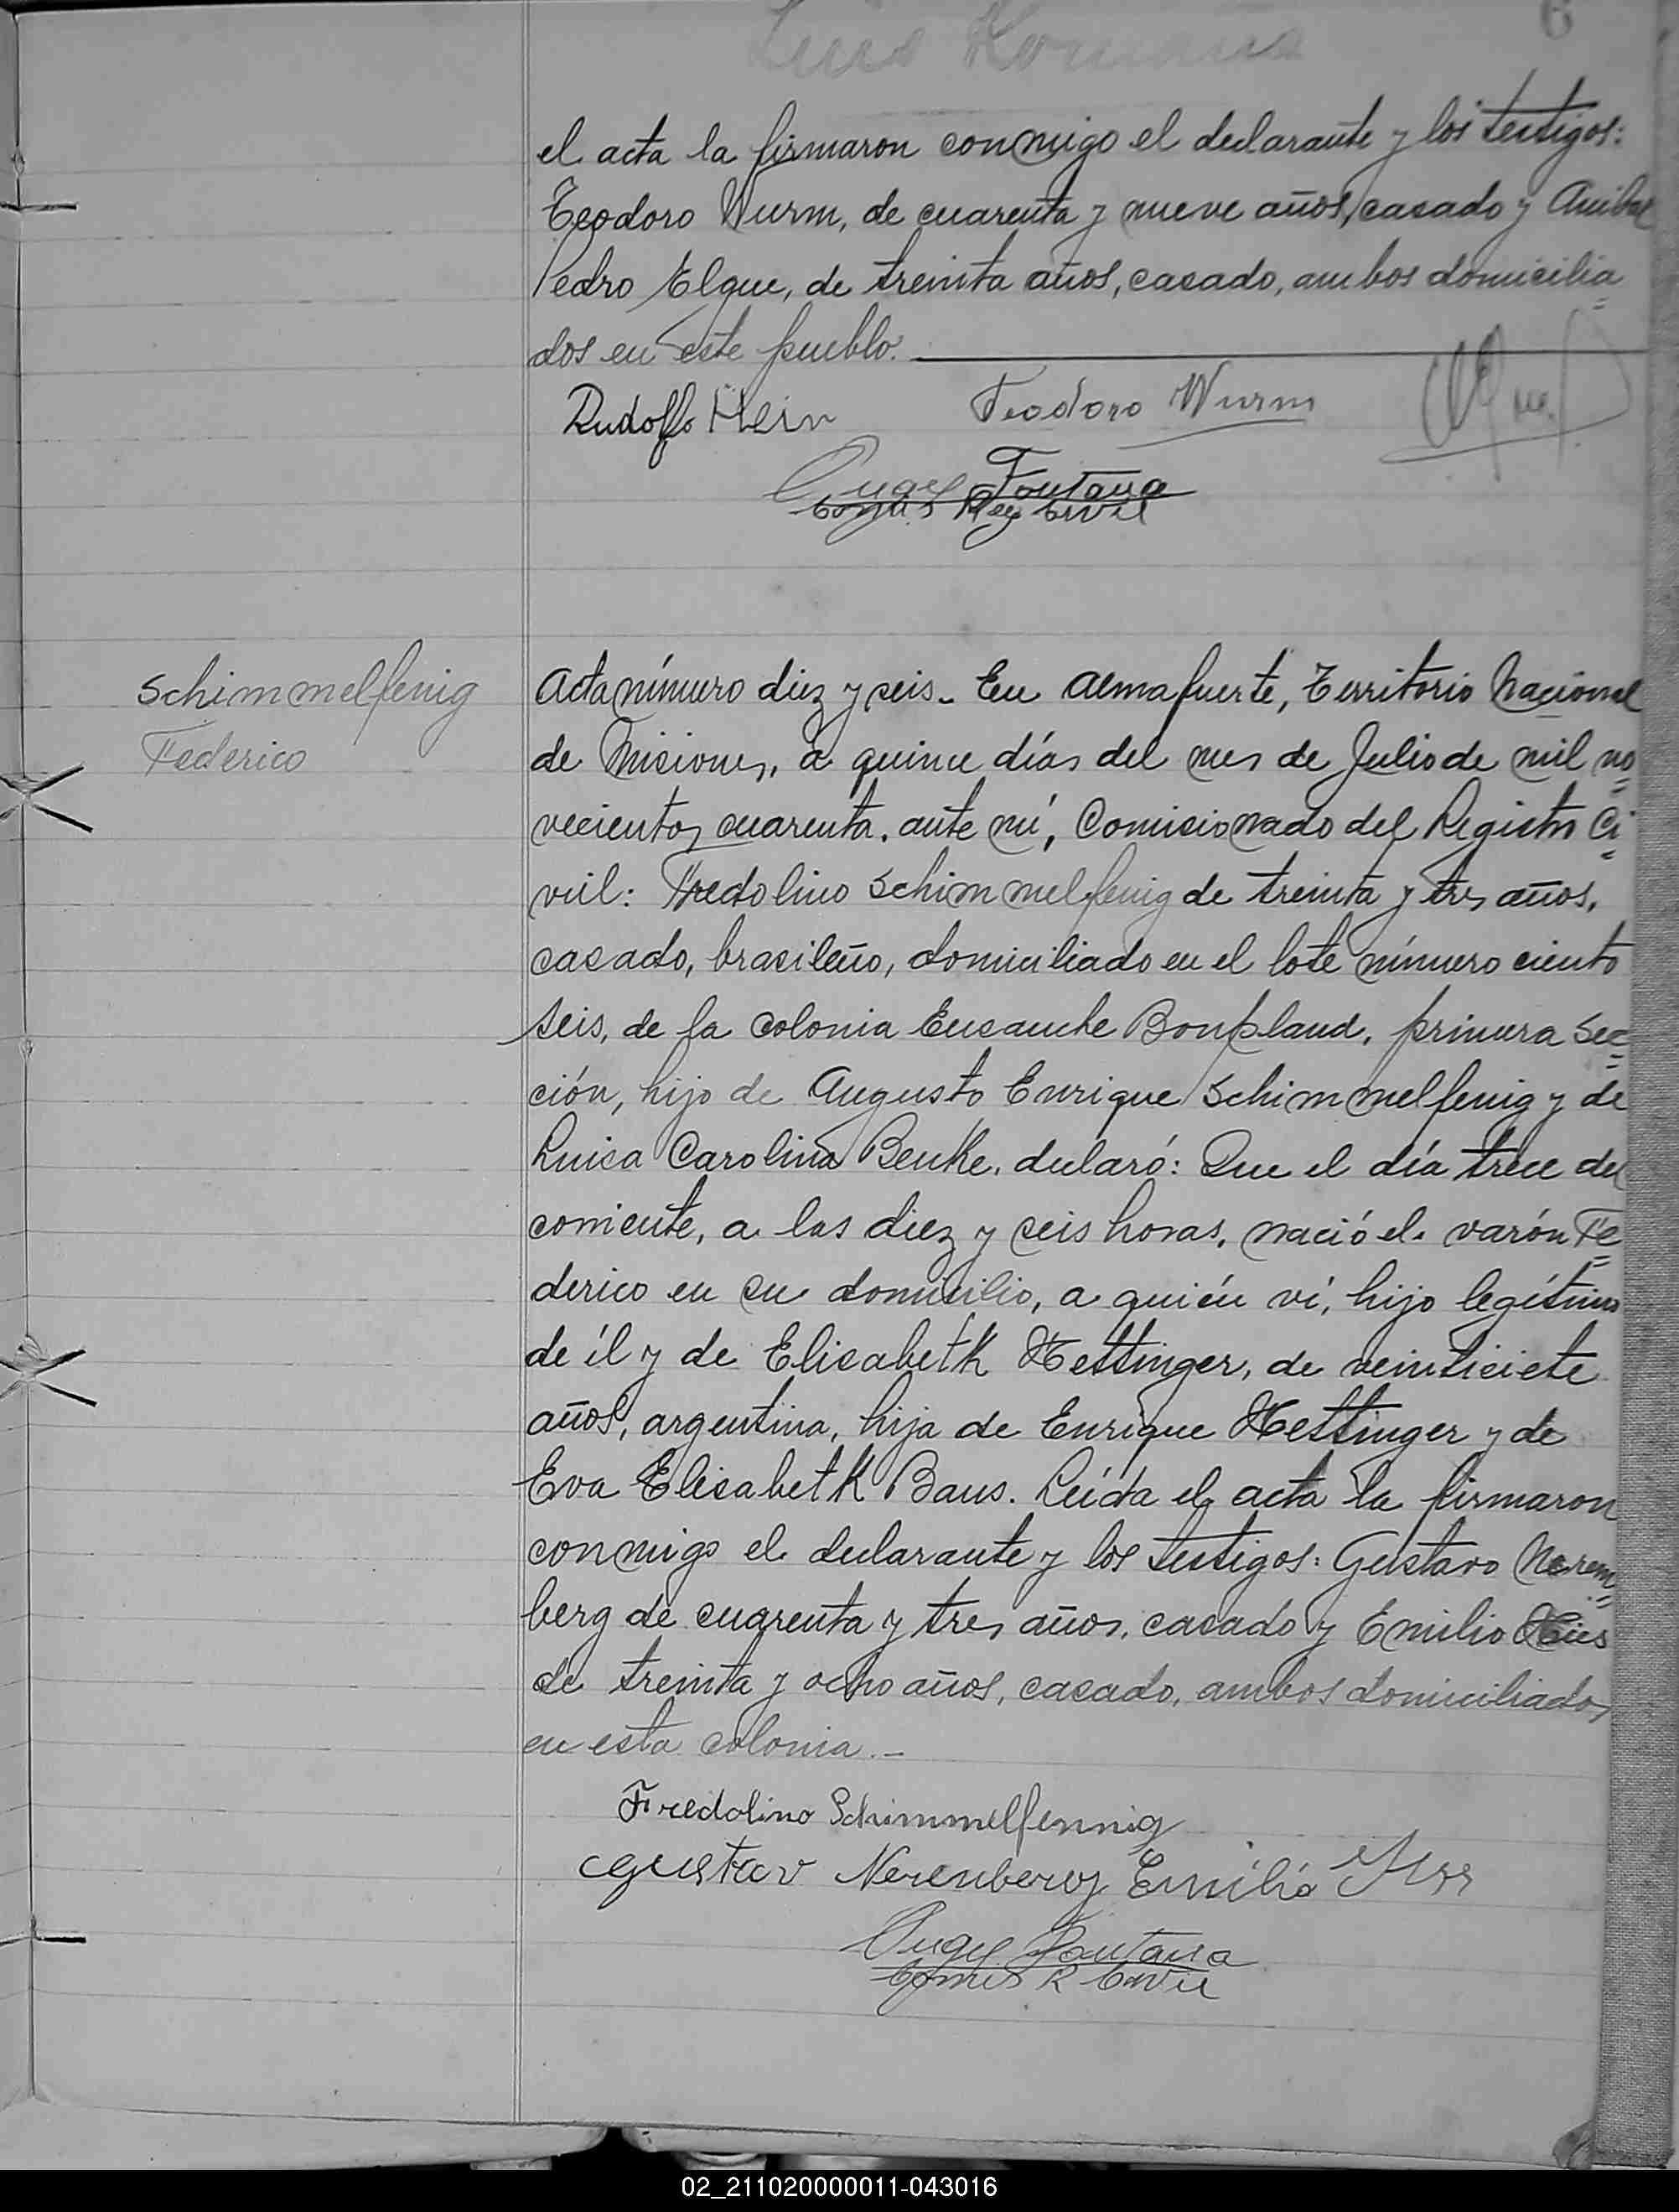 6
el acta la firmaron conmigo el declarante y los testigos:
Teodoro Wurm, de cuarenta y nueve años, casado y Anibal
Pedro Elque, de treinta años, casado, ambos domicilia=
dos en este pueblo.
Rudolfo Hein Teodoro Wurm
Angel Fontana
Comis Reg Civil
Schimmelfenig
Federico
Acta número diez y seis.- En Almafuerte, Territorio Nacional
de Misiones, a quince días del mes de Julio de mil no=
vecientos cuarenta. ante mí, Comisionado del Registro Ci=
vil: Fredolino Schimmelfenig de treinta y tres años,
casado, brasileño, domiciliado en el lote número ciento
seis, de la colonia Ensanche Bonpland, primera Sec=
ción, hijo de Augusto Enrique Schimmelfenig y de
Luisa Carolina Benke, declaró: Que el día trece del
corriente, a las diez y seis horas, nació el varón Fe=
derico en su domicilio, a quién ví, hijo legítimo
de él y de Elisabeth Hettinger, de veintisiete
años, argentina, hija de Enrique Hettinger y de
Eva Elisabeth Baus. Leída el acta la firmaron
conmigo el declarante y los testigos: Gustavo Nerem=
berg de cuarenta y tres años, casado y Emilio
de treinta y ocho años, casado, ambos domiciliados
en esta colonia.-
Fredolino Schimmelfennig
Gustav Nerenberg Emilio
Angel Fontana
Comis R Civil
02_211020000011-043016